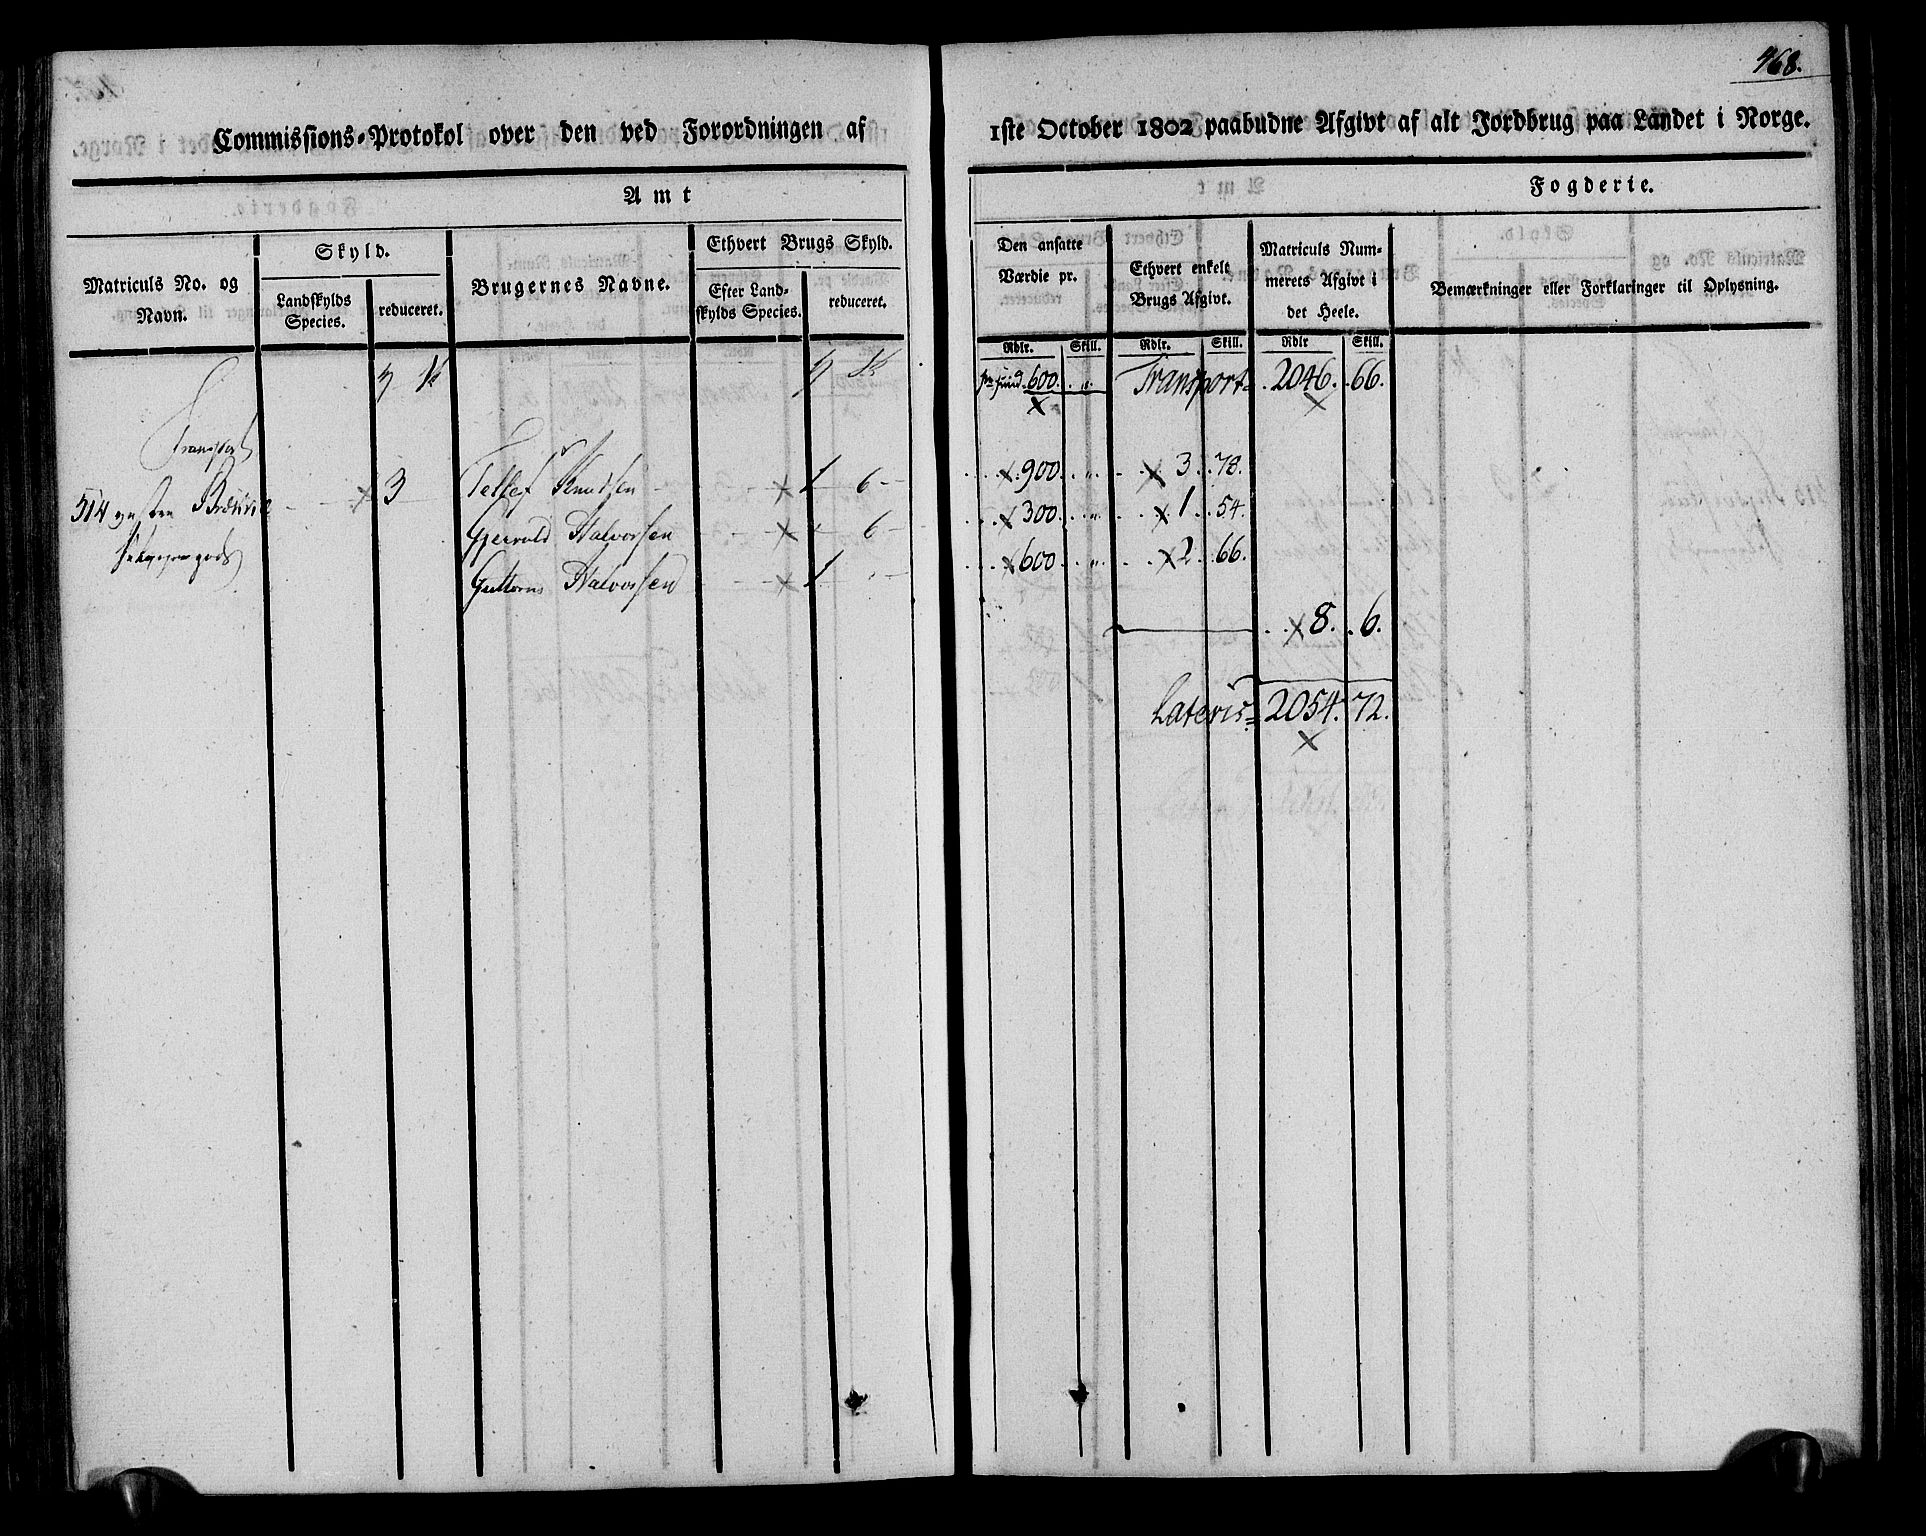 468.
Commissions-Protokol over den ved Forordningen af 1ste October 1802 paabudne Afgivt af alt Jordbrug paa Landet i Norge.
Amt Fogderie.
Matriculs No. og Navn.
Skyld.
Landskylds Species.
reduceret.
Brugernes Navne.
Ethvert Brugs Skyld.
Efter Landskylds Species.
reduceret.
Den ansatte Værdie pr.
Ethvert enkelt Brugs Afgivt.
Matriculs Nummerets Afgivt i det Heele.
Bemærkninger eller Forklaringer til Oplysning.
Rdlr. Skill. Rdlr. Skill. Rdlr Skill.
600. Transport 2046. 66.
Transport
514 3 Tellef Knudsen 1 6 900 3. 78.
Gjeruld Halvorsen 6 300 1. 54.
Guttorm Halvorsen 1 600 2. 66.
8. 6.
Lateris 2054. 72.